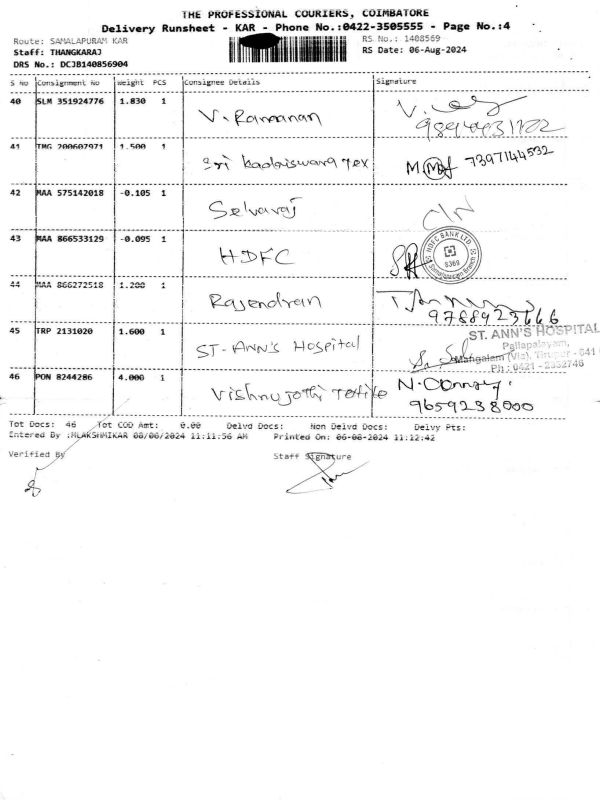 THE PROFESSIONAL COURIERS, COIMBATORE
Delivery Runsheet - KAR - Phone No.:0422-3505555 - Page No.:4
Route: SAMALAPURAM KAR
RS No.: 1408569
Staff: THANGKARAJ
RS Date: 06-Aug-2024
DRS No.: DCJB140856904
S No Consignment No Weight PCS Consignee Details Signature
40 SLM 351924776 1.830 1 V. Ramanan
41 TMG 200607971 1.500 1 Sri 7397144532
42 MAA 575142018 -0.105 1 Selvaraj
43 MAA 866533129 -0.095 1 HDFC
HDFC BANK LTD
44 MAA 866272518 1.200 1 Rajendran 9788923666
45 TRP 2131020 1.600 1 ST. ANN'S Hospital
ST. ANN'S HOSPITAL
Pallapalayam,
Mangalam (Via), Tirupur - 641
Ph : 0421 - 2332746
46 PON 8244286 4.000 1 Vishnujothi
9659238000
Tot Docs: 46 Tot COD Amt: 0.00 Delvd Docs: Non Delvd Docs: Delvy Pts:
Entered By :MLAKSHMIKAR 08/06/2024 11:11:56 AM Printed On: 06-08-2024 11:12:42
Verified By Staff Signature